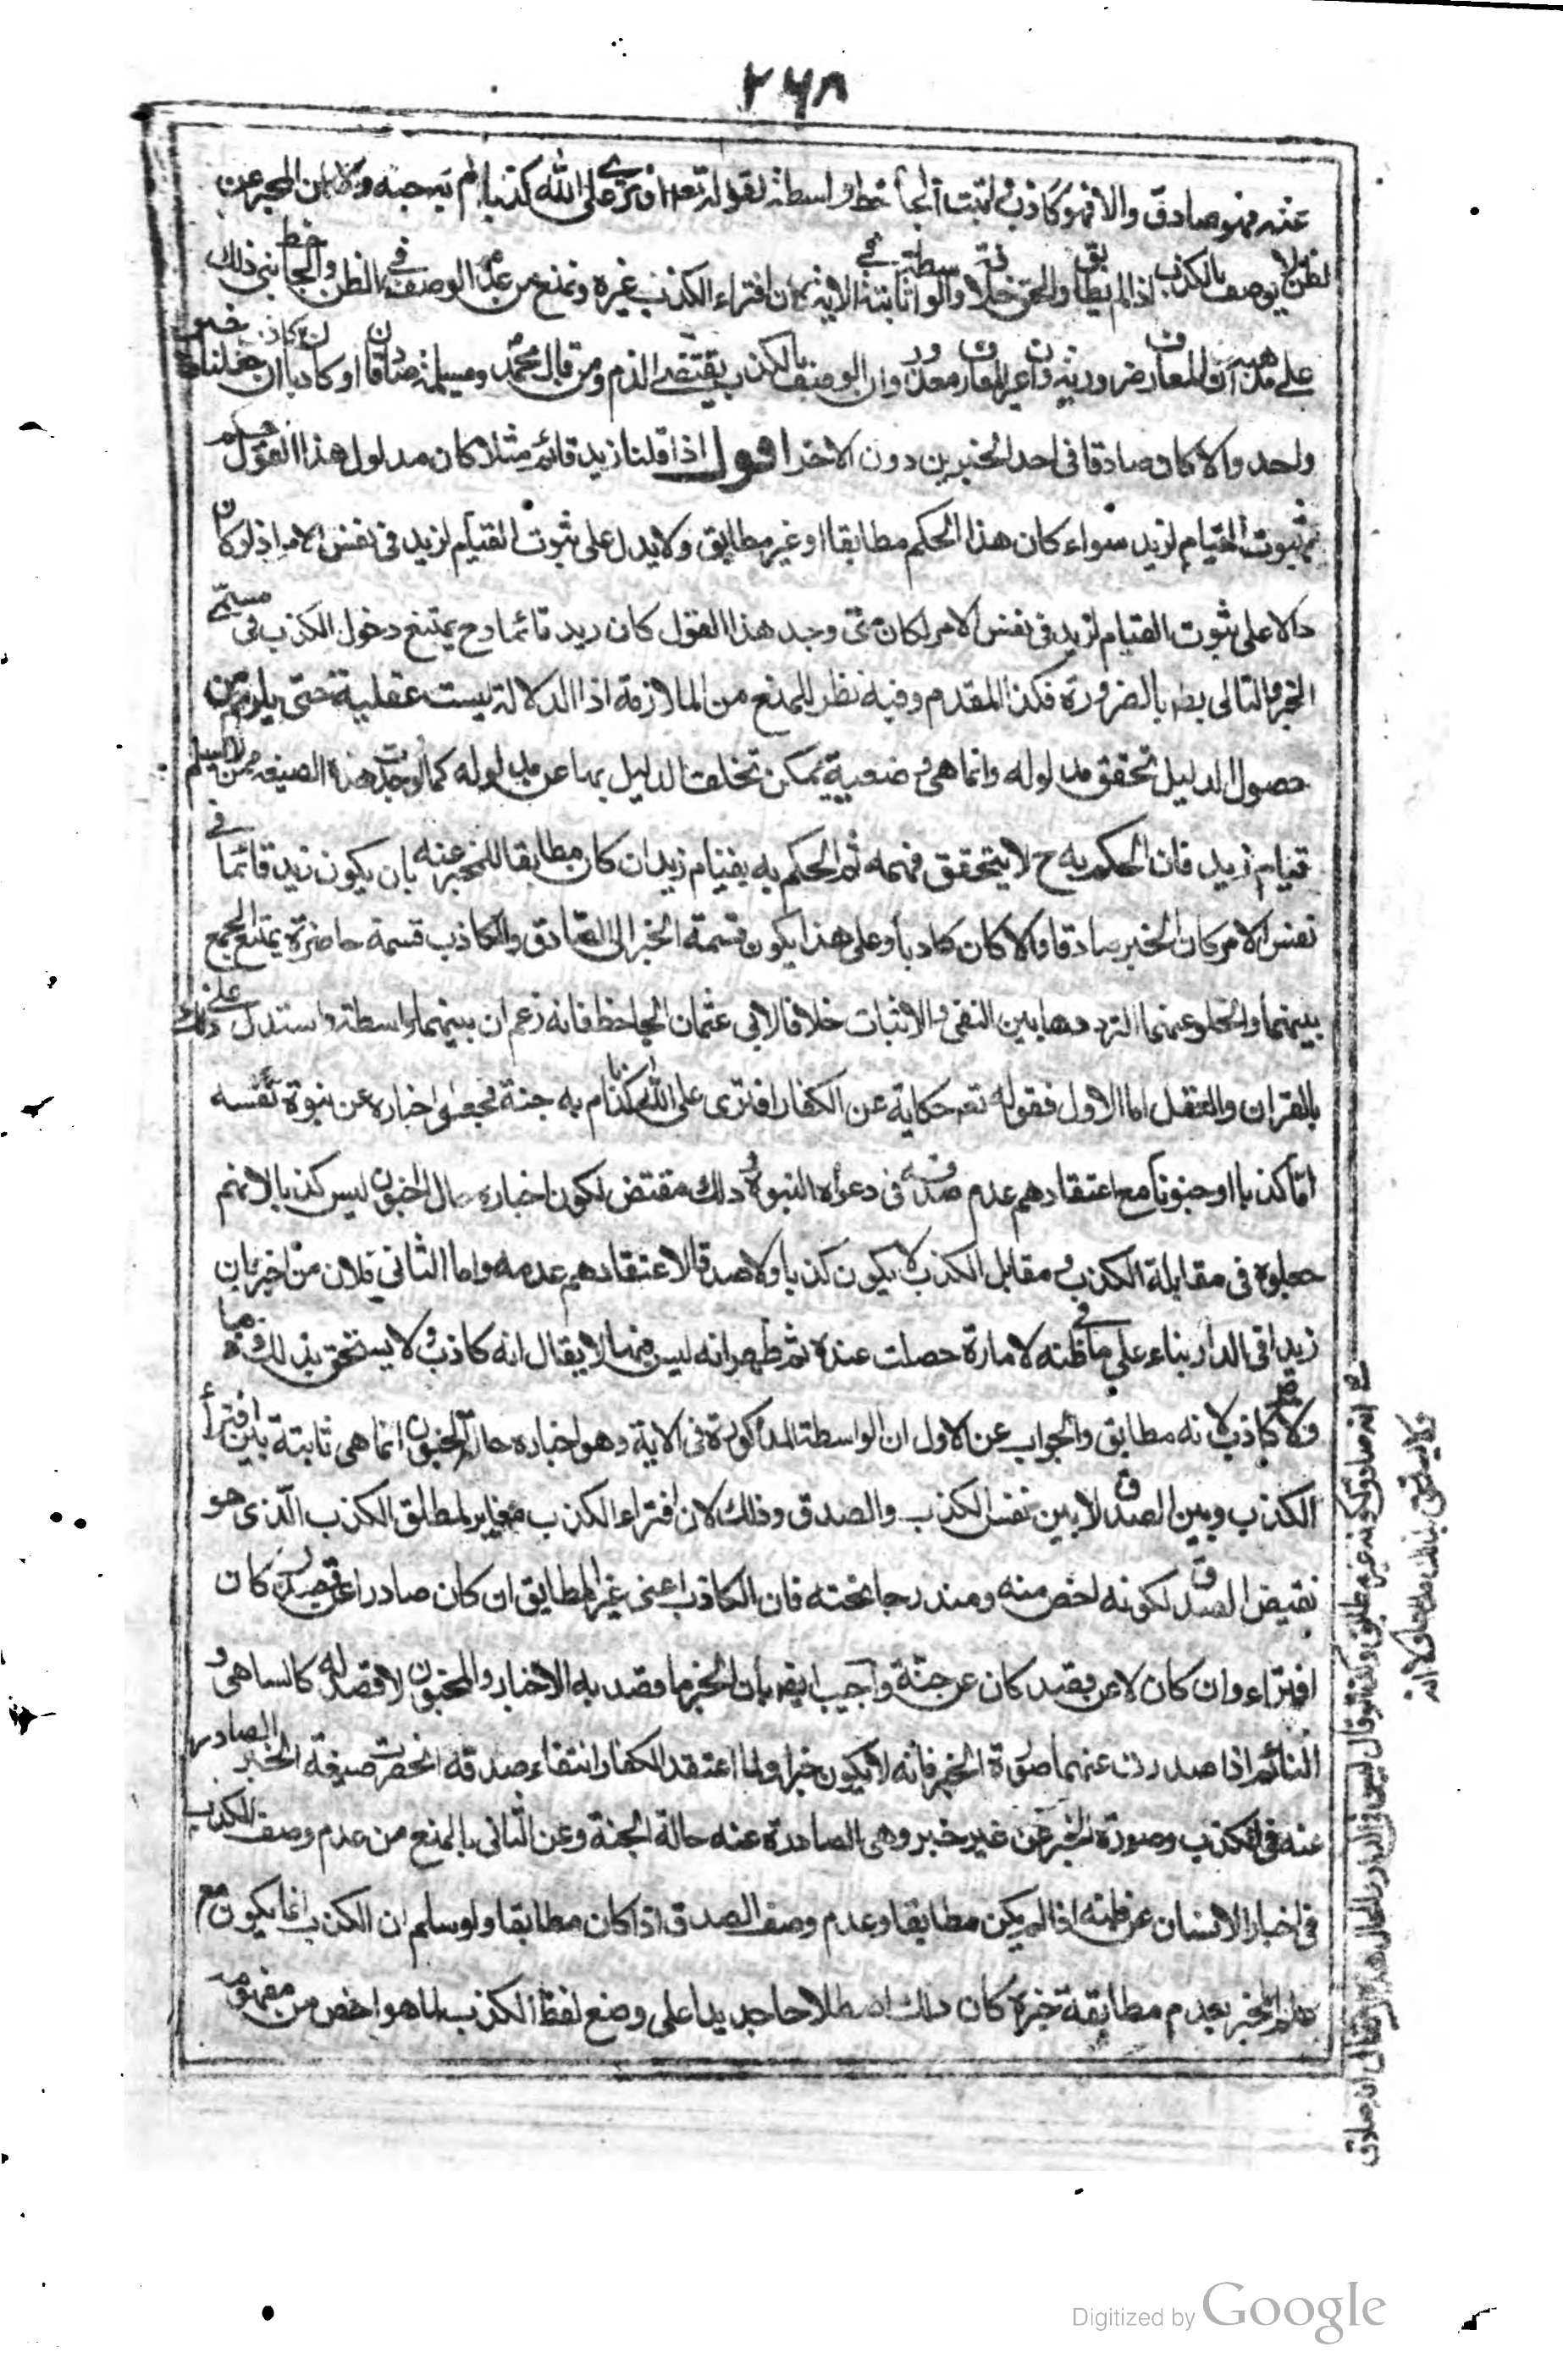 ٢٦٨
عنه فهو صادق والا فهو كاذب واثبت الجاحظ واسطة لقوله تعالى افترى على الله كذبا ام به جنة ولان المخبر عن
الظن لا يوصف بالكذب اذا لم يطابق والحق خلافه والواسطة ثابتة في الاية بين افتراء الكذب وغيره ونمنع من عدم الوصف في الظن والجاحظ بنى ذلك
على مذهبه ان المعارف ضرورية وان غير العارف معذور وان الوصف بالكذب يقتضي الذم ومن قال محمد ومسيلمة صادقان او كاذبان كاذب ان جعلناه خبر
واحد والا كان صادقا في احد الخبرين دون الاخر اقول اذا قلنا زيد قائم مثلا كان مدلول هذا القول حكم
بثبوت القيام لزيد سواء كان هذا الحكم مطابقا او غير مطابق ولا يدل على ثبوت القيام لزيد في نفس الامر اذ لو كان
دالا على ثبوت القيام لزيد في نفس الامر لكان متى وجد هذا القول كان زيد قائما وح يمتنع دخول الكذب في مسمى
الخبر والتالى بط بالضرورة فكذا المقدم وفيه نظر للمنع من الملازمة اذ الدلالة ليست عقلية حتى يلزم من
حصول الدليل تحقق مدلوله وانما هي وضعية يمكن تخلف الدليل بها عن مدلوله كما لو وجدت هذه الصيغة ممن لا يعلم
قيام زيد فان الحكم به ح لا يتحقق فهمه ثم الحكم به بقيام زيد ان كان مطابقا للمخبر عنه بان يكون زيد قائما في
نفس الامر كان الخبر صادقا والا كان كاذبا وعلى هذا يكون قسمة الخبر الى الصادق والكاذب قسمة حاصرة يمتنع الجمع
بينهما والخلو عنهما لترددها بين النفى والاثبات خلافا لابي عثمان الجاحظ فانه زعم ان بينهما واسطة واستدل على ذلك
بالقران والعقل اما الاول فقوله تع حكاية عن الكفار افترى على الله كذبا ام به جنة فجعلوا اخباره عن نبوة نفسه
اما كذبا او جنونا مع اعتقادهم عدم صدقه في دعواه النبوة وذلك مقتض لكون اخباره حال الجنون ليس كذبا لانهم
جعلوه في مقابلة الكذب ومقابل الكذب لا يكون كذبا ولا صدقا لاعتقادهم عدمه واما الثاني فلان من اخبر بان
زيدا في الدار بناء على ما في ظنه لامارة حصلت عنده ثم ظهر انه ليس فيها لا يقال انه كاذب ولا يستحق بذلك ذما
ولا كاذب لانه مطابق والجواب عن الاول ان الواسطة المذكورة في الاية وهو اخباره حالة الجنون انما هي ثابتة بين افتراء
الكذب وبين الصدق لا بين نفس الكذب والصدق وذلك لان افتراء الكذب مغاير لمطلق الكذب الذى هو
نقيض الصدق لكونه اخص منه ومندرجا تحته فان الكاذب اعنى غير المطابق ان كان صادرا عن قصد كان
افتراء وان كان لا عن قصد كان عن جنة واجيب ايض بان الخبر ما قصد به الاخبار والمجنون لا قصد له كالساهى و
النائم اذا صدرت عنهما صورة الخبر فانه لا يكون خبرا ولما اعتقد الكفار انتفاء صدقه انحصرت صيغة الخبر الصادرة
عنه في الكذب وصورة الخبر عن غير خبر وهي الصادرة عنه حالة الجنة وعن الثانى بالمنع من عدم وصف الكذب
في اخبار الانسان عن ظنه اذا لم يكن مطابقا وعدم وصف الصدق اذا كان مطابقا ولو سلم ان الكذب انما يكون مع
علم المخبر بعدم مطابقة خبره كان ذلك اصطلاحا جديدا على وضع لفظ الكذب لما هو اخص من مفهومه
انه صادق لكونه غير مطابق ولو قال ليس في الدار والحال هذه لا يقال انه صادق
ولا يستحق بذلك مدحا ولا انه